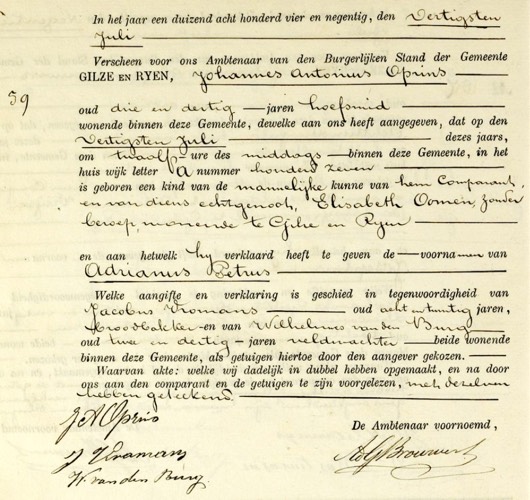 In het jaar een duizend acht honderd vier en negentig, den dertigsten
Juli
Verscheen voor ons Ambtenaar van den Burgerlijken Stand der Gemeente
GILZE EN RYEN, Johannes Antonius Oprins
59
oud drie en dertig jaren hoefsmid
wonende binnen deze Gemeente, dewelke aan ons heeft aangegeven, dat op den
dertigsten Juli dezes jaars,
om twaalf ure des middags binnen deze Gemeente, in het
huis wijk letter A nummer honderd zeven
is geboren een kind van de mannelijke kunne van hem Comparant,
en van diens echtgenoot, Elisabeth Oomen, zonder
beroep, wonende te Gilze en Rijen
en aan hetwelk hij verklaard heeft te geven de voornamen van
Adrianus Petrus
Welke aangifte en verklaring is geschied in tegenwoordigheid van
Jacobus Vromans oud acht en twintig jaren,
broodbakker en van Wilhelmus van den Burg
oud twee en dertig jaren veldwachter beide wonende
binnen deze Gemeente, als getuigen hiertoe door den aangever gekozen.
Waarvan akte: welke wij dadelijk in dubbel hebben opgemaakt, en na door
ons aan den comparant en de getuigen te zijn voorgelezen, met dezelven
hebben geteekend
J A Oprins
De Ambtenaar voornoemd,
J Vromans
W. van den Burg